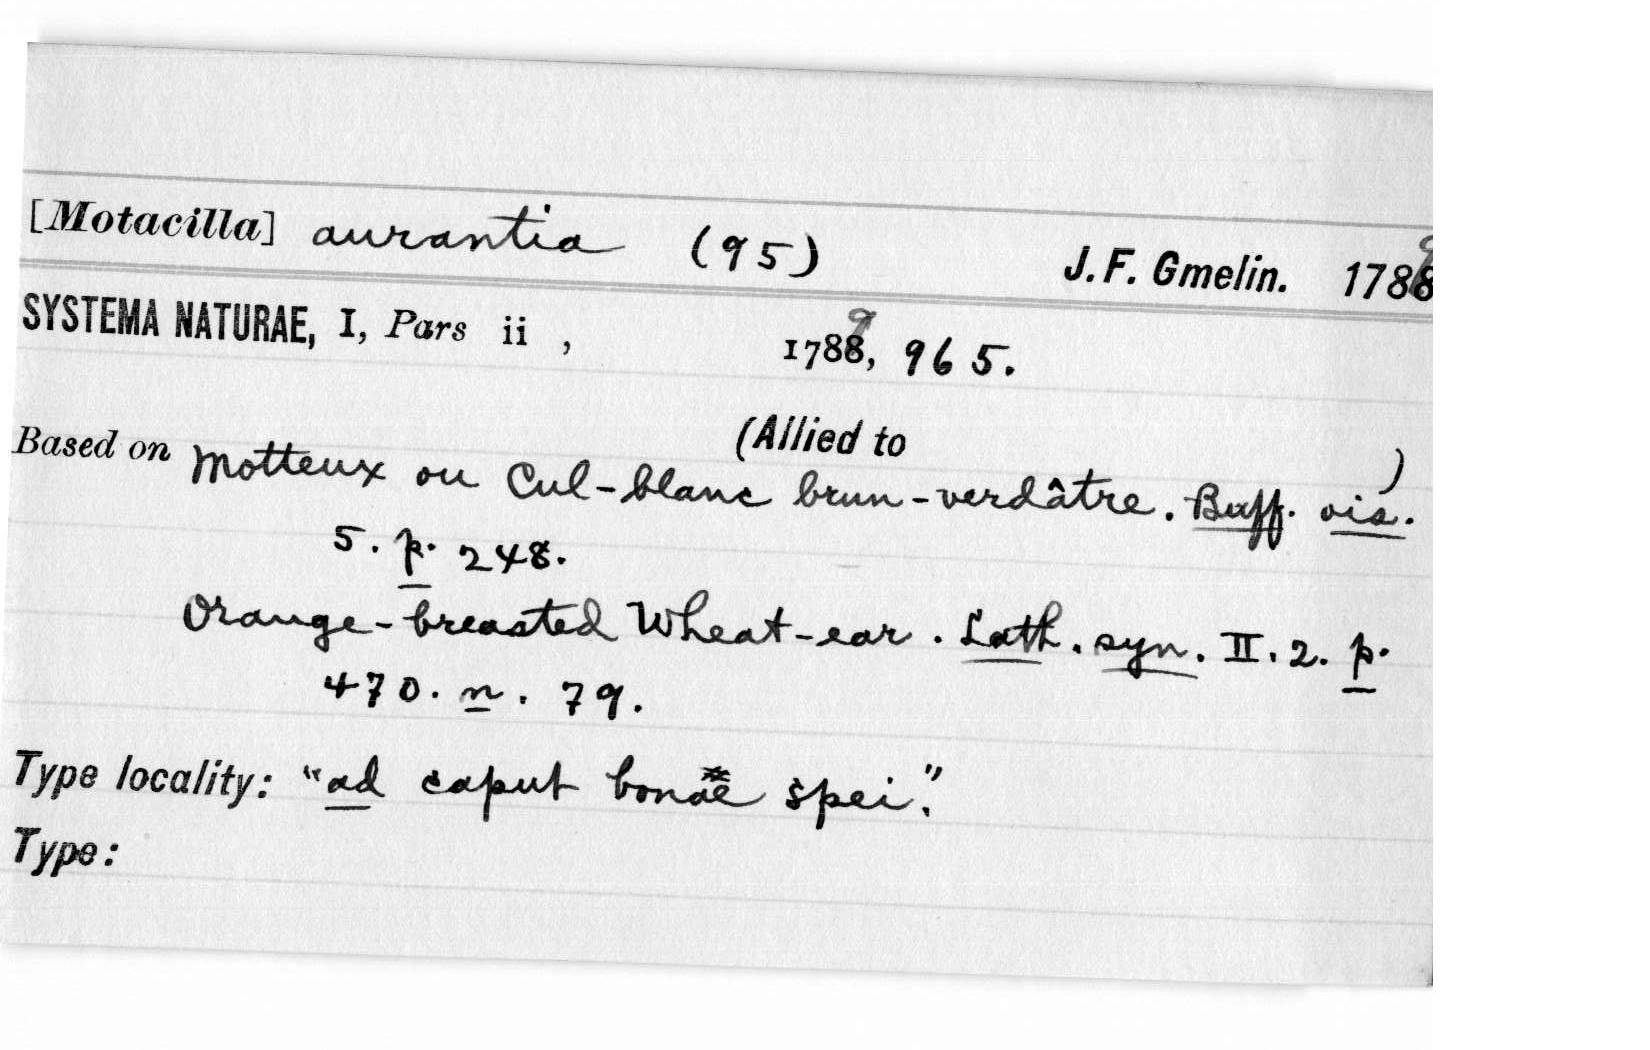 [Motacilla] aurantia (95) J. F. Gmelin. 1789
SYSTEMA NATURAE, I, Pars ii , 1789, 965.
(Allied to )
Based on Motteux ou Cul-blanc brun-verdâtre. Buff. ois.
5. p. 248.
Orange-breasted Wheat-ear. Lath. syn. II. 2. p.
470. n. 79.
Type locality: "ad caput bonae spei."
Type: